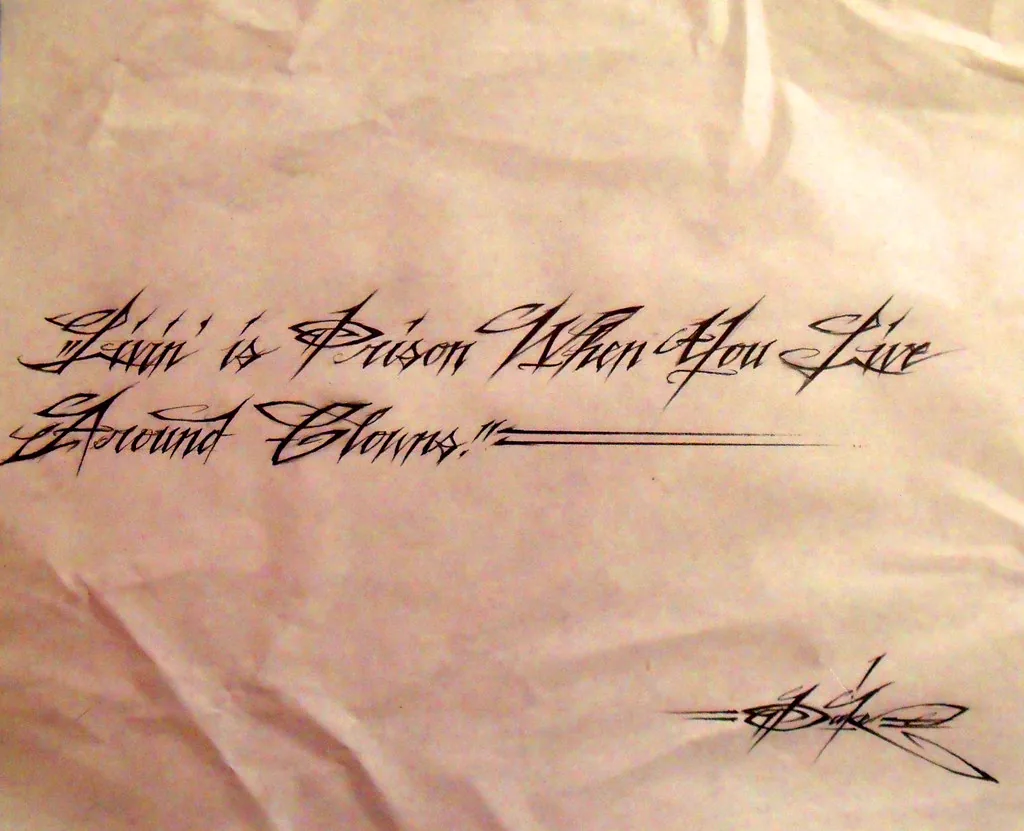 "Livin' is Prison When You Live
Around Clowns."
Duke